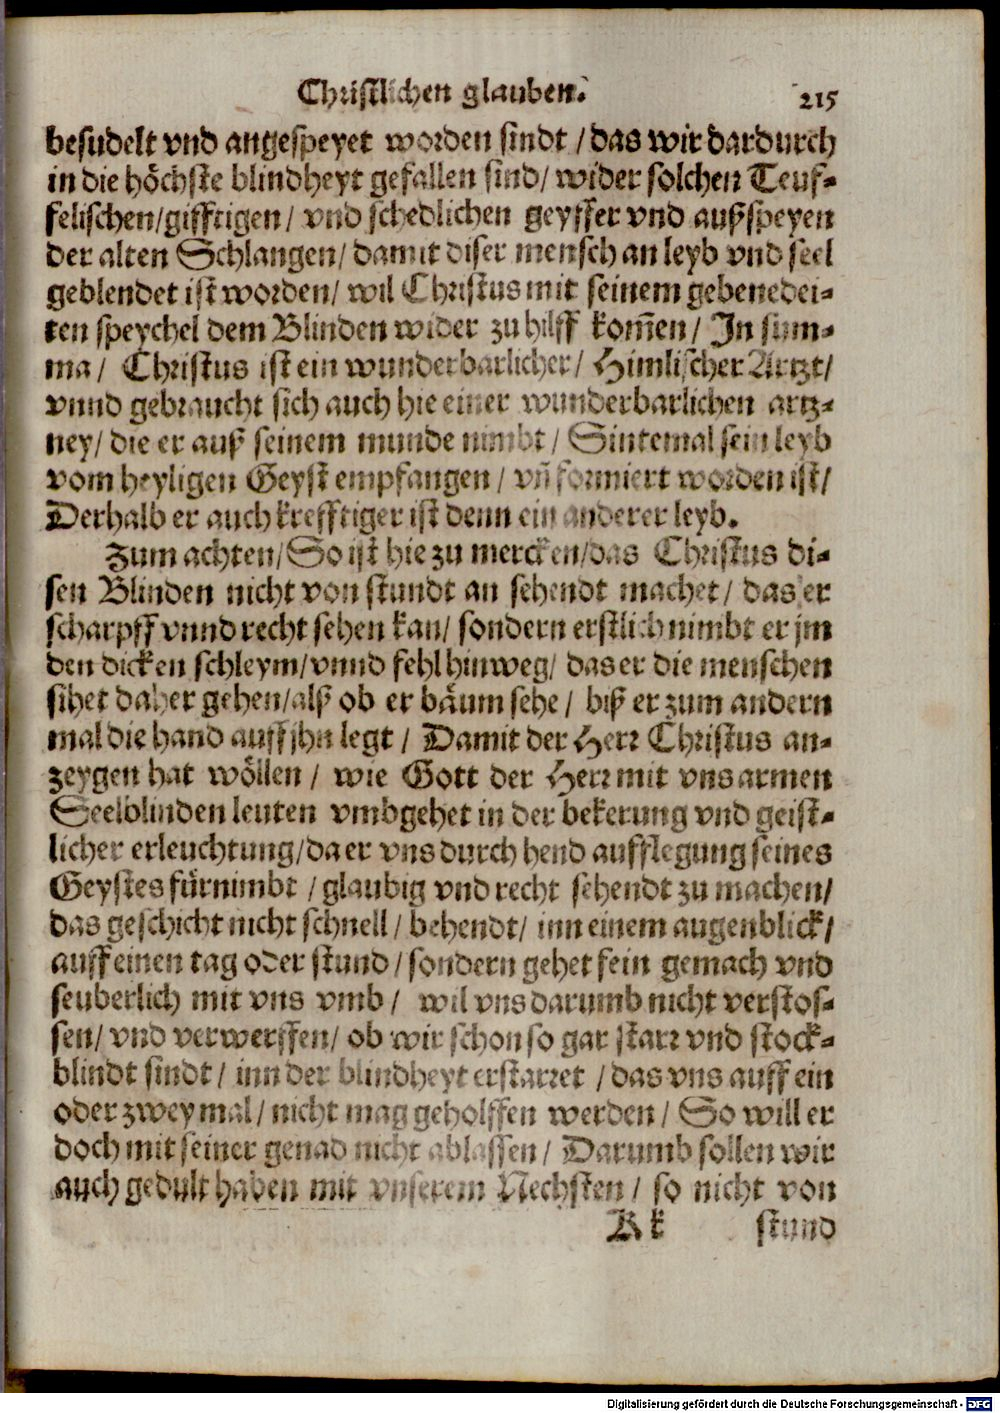 Christlichen glauben. 215
besudelt vnd angespeyet worden sindt / das wir dardurch
in die höchste blindheyt gefallen sind / wider solchen Teuf-
felischen / gifftigen / vnd schedlichen geyffer vnd außspeyen
der alten Schlangen / damit diser mensch an leyb vnd seel
geblendet ist worden / wil Christus mit seinem gebenedei-
ten speychel dem Blinden wider zu hilff kom̃en / In sum-
ma / Christus ist ein wunderbarlicher / Himlischer Artzt /
vnnd gebraucht sich auch hie einer wunderbarlichen artz-
ney / die er auß seinem munde nimbt / Sintemal sein leyb
vom heyligen Geyst empfangen / vñ formiert worden ist /
Derhalb er auch krefftiger ist denn ein anderer leyb.
Zum achten / So ist hie zu mercken / das Christus di-
sen Blinden nicht von stundt an sehendt machet / das er
scharpff vnnd recht sehen kan / sondern erstlich nimbt er jm
den dicken schleym / vnnd fehl hinweg / das er die menschen
sihet daher gehen / alß ob er bäum sehe / biß er zum andern
mal die hand auff jhn legt / Damit der Herr Christus an-
zeygen hat wöllen / wie Gott der Herr mit vns armen
Seelblinden leuten vmbgehet in der bekerung vnd geist-
licher erleuchtung / da er vns durch hend aufflegung seines
Geystes fürnimbt / glaubig vnd recht sehendt zu machen /
das geschicht nicht schnell / behendt / inn einem augenblick /
auff einen tag oder stund / sondern gehet fein gemach vnd
seuberlich mit vns vmb / wil vns darumb nicht verstos-
sen / vnd verwerffen / ob wir schon so gar starr vnd stock-
blindt sindt / inn der blindheyt erstarret / das vns auff ein
oder zwey mal / nicht mag geholffen werden / So will er
doch mit seiner genad nicht ablassen / Darumb sollen wir
auch gedult haben mit vnserem Nechsten / so nicht von
Kk stund
Digitalisierung gefördert durch die Deutsche Forschungsgemeinschaft - DFG